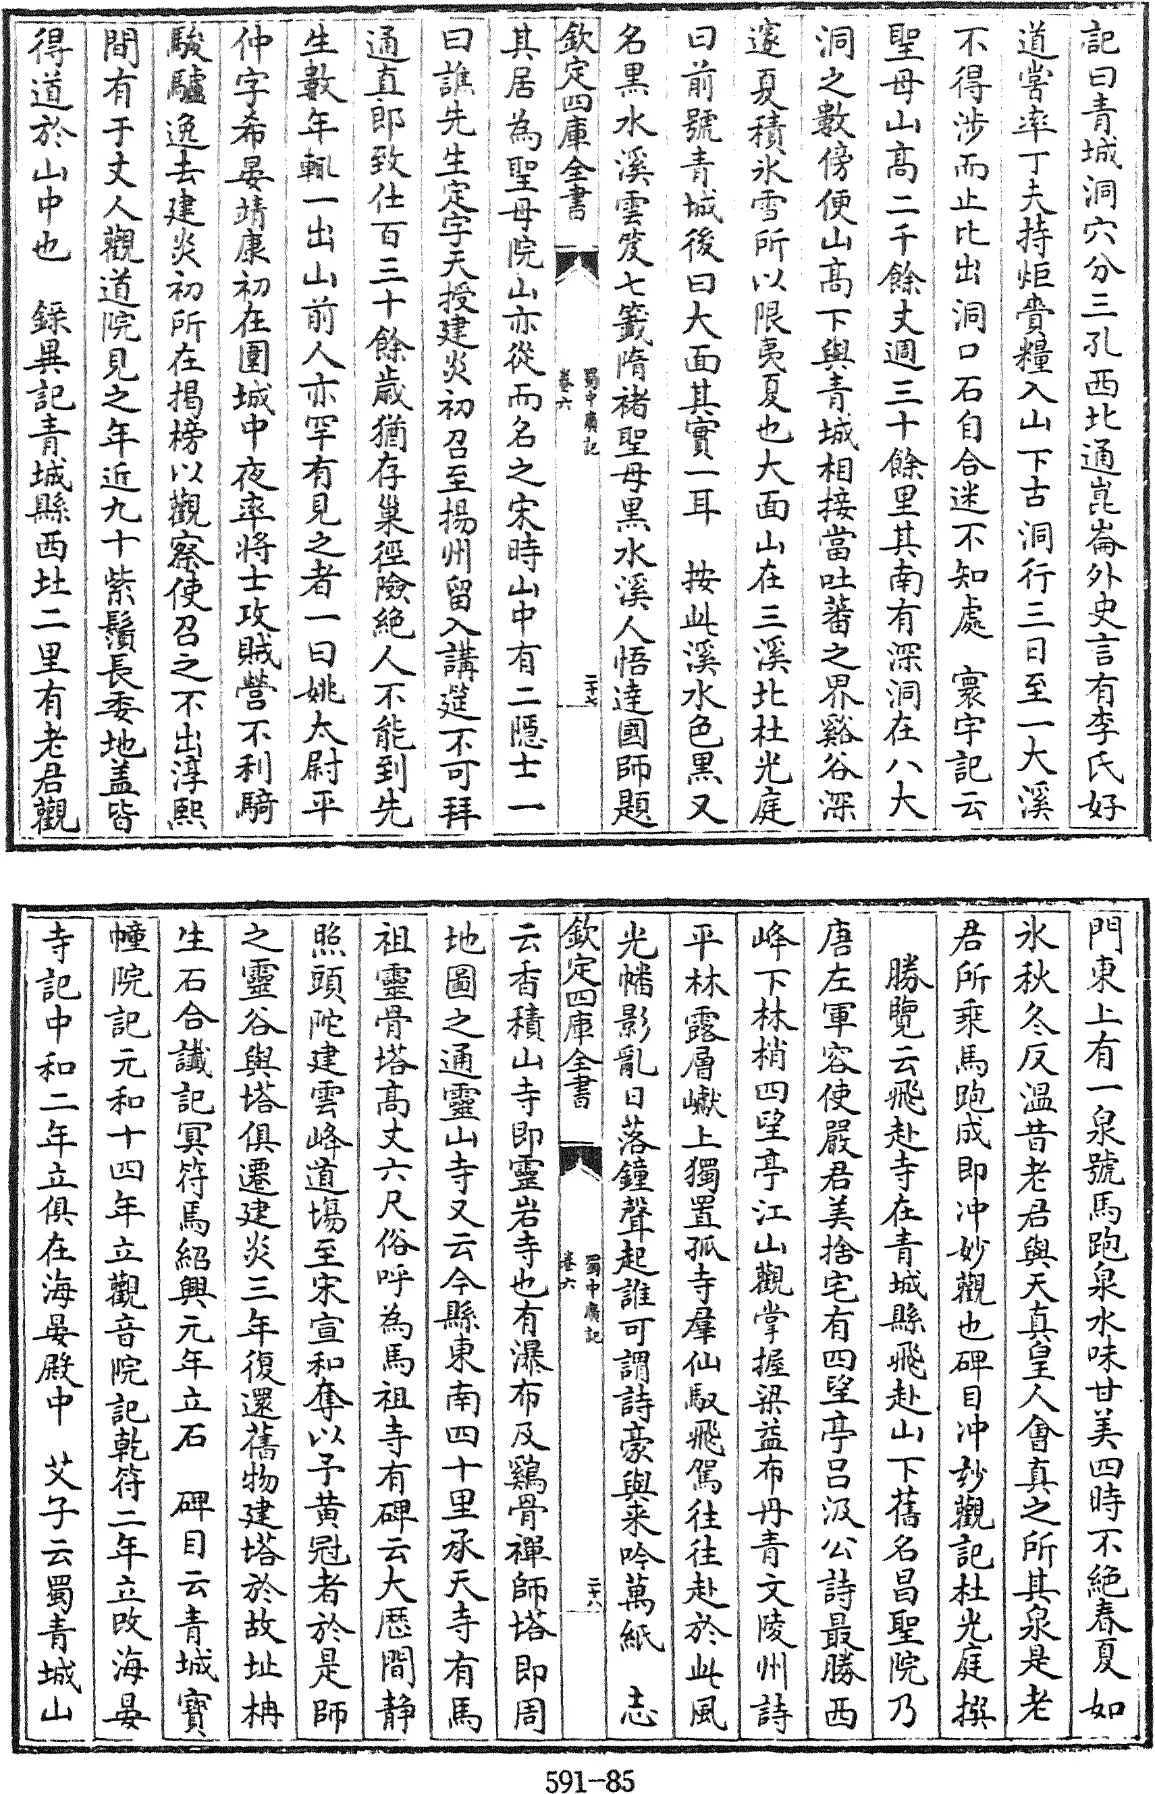 記曰青城洞穴分三孔西北通崑崙外史言有李氏好
道嘗率丁夫持炬賫糧入山下古洞行三日至一大溪
不得渉而止比出洞口石自合迷不知處　寰宇記云
聖母山高二千餘丈週三十餘里其南有深洞在八大
洞之數傍便山高下與青城相接當吐蕃之界谿谷深
邃夏積氷雪所以限夷夏也大面山在三溪北杜光庭
曰前號青城後曰大面其實一耳　按此溪水色黒又
名黒水溪雲笈七籤隋褚聖母黒水溪人悟達國師題
欽定四庫全書
蜀中廣記
卷六
二十七
其居為聖母院山亦從而名之宋時山中有二隱士一
曰譙先生定字天授建炎初召至揚州留入講筵不可拜
通直郎致仕百三十餘歳猶存巢徑險絶人不能到先
生數年輒一出山前人亦罕有見之者一曰姚太尉平
仲字希晏靖康初在圍城中夜率將士攻賊營不利騎
駿驢逸去建炎初所在揭榜以觀察使召之不出淳熙
間有于丈人觀道院見之年近九十紫鬚長委地盖皆
得道於山中也　錄異記青城縣西北二里有老君觀
門東上有一泉號馬跑泉水味甘美四時不絶春夏如
氷秋冬反溫昔老君與天真皇人會真之所其泉是老
君所乗馬跑成即冲妙觀也碑目冲妙觀記杜光庭撰
勝覽云飛赴寺在青城縣飛赴山下舊名昌聖院乃
唐左軍容使嚴君美捨宅有四望亭呂汲公詩最勝西
峰下林梢四望亭江山觀掌握梁益布丹青文陵州詩
平林露層巘上獨置孤寺羣仙馭飛駕往往赴於此風
光幡影亂日落鐘聲起誰可謂詩豪與来吟萬紙　志
欽定四庫全書
蜀中廣記
卷六
二十八
云香積山寺即靈岩寺也有瀑布及鷄骨禪師塔即周
地圖之通靈山寺又云今縣東南四十里承天寺有馬
祖靈骨塔高丈六尺俗呼為馬祖寺有碑云大厯間静
照頭陀建雲峰道場至宋宣和奪以予黄冠者於是師
之靈谷與塔俱遷建炎三年復還舊物建塔於故址冉
生石合讖記冥符馬紹興元年立石　碑目云青城寳
幢院記元和十四年立觀音院記乾符二年立改海晏
寺記中和二年立俱在海晏殿中　艾子云蜀青城山
591-85